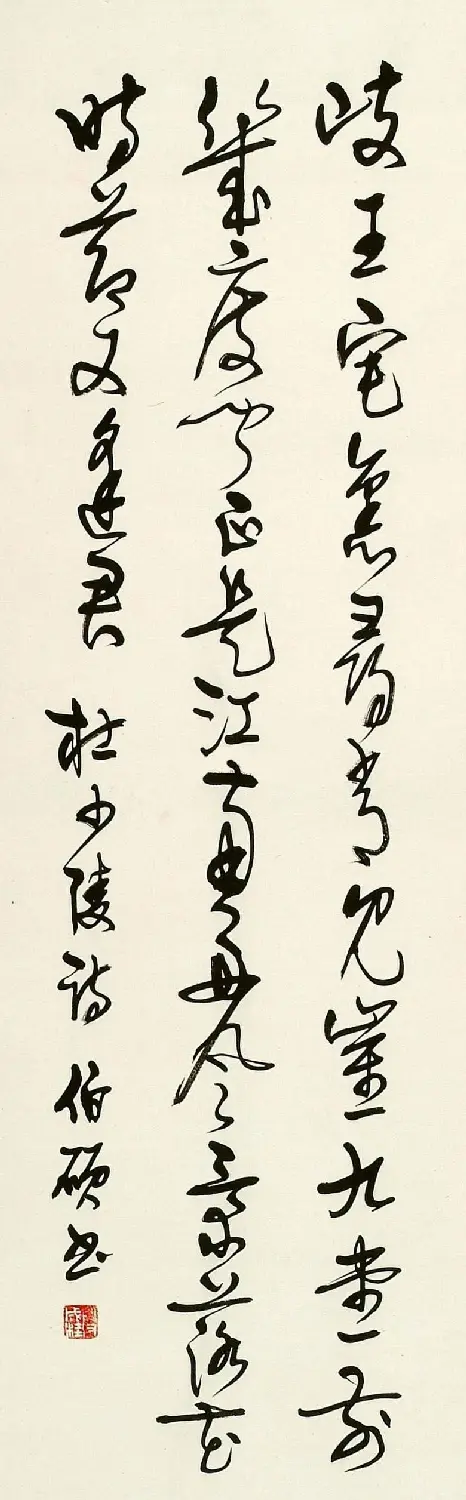 岐王宅裏尋常見崔九堂前
幾度聞正是江南好風景落花
時節又逢君 杜少陵詩 伯碩書